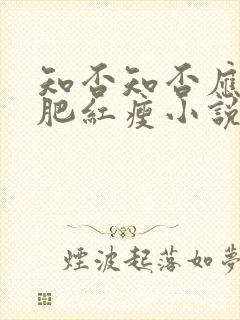 知否知否應
肥紅瘦小說
煙波起落如夢